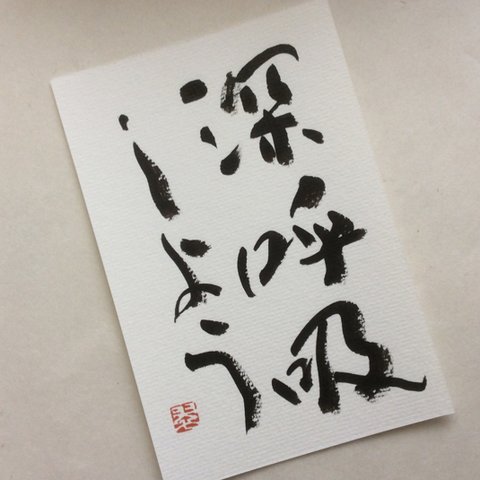 深呼吸
しよう